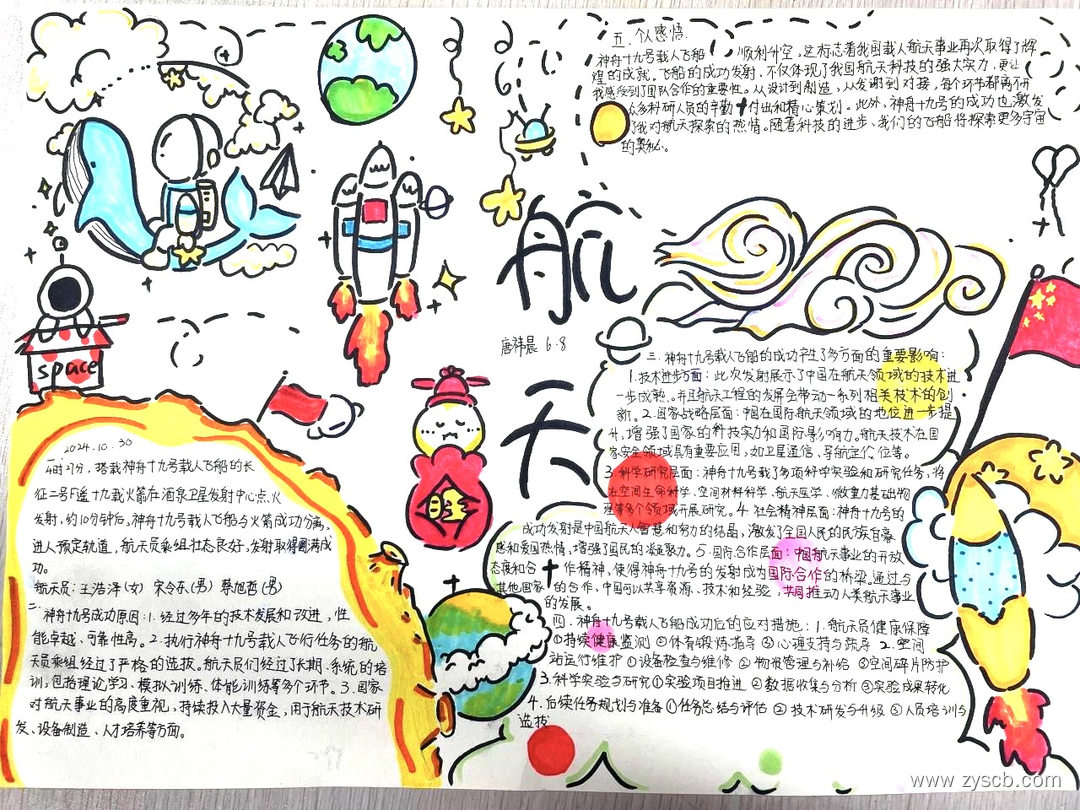 航
天
唐祎晨 6.8
space
2024.10.30
4时27分，搭载神舟十九号载人飞船的长
征二号F遥十九载火箭在酒泉卫星发射中心点火
发射，约10分钟后，神舟十九号载人飞船与火箭成功分离，
进入预定轨道，航天员乘组状态良好，发射取得圆满成
功。
航天员：王浩泽(女) 宋令东(男) 蔡旭哲(男)
二、神舟九号成功原因：1.经过多年的技术发展和改进，性
能卓越、可靠性高。2.执行神舟十九号载人飞行任务的航
天员乘组经过了严格的选拔。航天员们经过了长期、系统的培
训，包括理论学习、模拟训练、体能训练等多个环节。3.国家
对航天事业的高度重视，持续投入大量资金，用于航天技术研
发、设备制造、人才培养等方面。
三、神舟十九号载人飞船的成功产生了多方面的重要影响：
1.技术进步方面：此次发射展示了中国在航天领域的技术进
一步成熟。并且航天工程的发展会带动一系列相关技术的创
新。2.国家战略层面：中国在国际航天领域的地位进一步提
升，增强了国家的科技实力和国际影响力。航天技术在国
家安全领域具有重要应用，如卫星通信、导航定位等。
3.科学研究层面：神舟十九号载了多项科学实验和研究任务，将
在空间生命科学、空间材料科学、航天医学、微重力基础物
理等多个领域开展研究。4.社会精神层面：神舟十九号的
成功发射是中国航天人智慧和努力的结晶，激发了全国人民的民族自豪
感和爱国热情，增强了国民的凝聚力。5.国际合作层面：中国航天事业的开放
态度和合作精神，使得神舟十九号的发射成为国际合作的桥梁。通过与
其他国家的合作，中国可以共享资源、技术和经验，共同推动人类航天事业
的发展。
四、神舟十九号载人飞船成功后的应对措施：1.航天员健康保障
①持续健康监测 ②体育锻炼指导 ③心理支持与疏导 2.空间
站运行维护 ①设备检查与维修 ②物资管理与补给 ③空间碎片防护
3.科学实验与研究①实验项目推进 ②数据收集与分析 ③实验成果转化
4.后续任务规划与准备 ①任务总结与评估 ② 技术研发与升级 ③人员培训与
选拔
五、个人感悟.
神舟十九号载人飞船，顺利升空，这标志着我国载人航天事业再次取得了辉
煌的成就。飞船的成功发射，不仅体现了我国航天科技的强大实力，更让
我感受到了团队合作的重要性。从设计到制造，从发谢到对接，每个环节都离不开
众多科研人员的辛勤付出和精心策划。此外，神舟十九号的成功也激发
了我对航天探索的热情。随着科技的进步，我们的飞船将探索更多宇宙
的奥秘。
www.zyscb.com